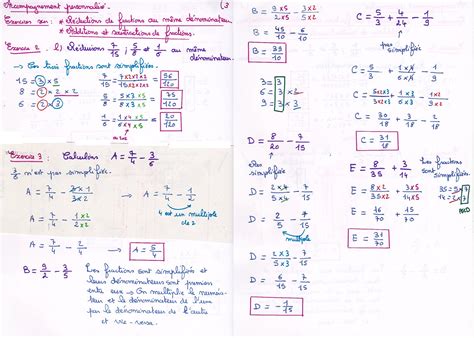 Accompagnement personnalisé. (3
Exercices sur : * Réductions de fractions au même dénominateur.
* Additions et soustractions de fractions.
Exercice 2 : 1) Réduisons 7/15 ; 5/8 et 1/6 au même dénominateur.
→ Ces trois fractions sont simplifiées.
15 = 3 × 5
8 = 2 × 2 × 2
6 = 2 × 3
7/15 = 7×2×2×2/15×2×2×2 = 56/120
5/8 = 5×3×5/8×3×5 = 75/120
1/6 = 1×4×5/6×4×5 = 20/120
Exercice 3 : Calculons A = 7/4 - 3/6
3/6 n'est pas simplifiée.
A = 7/4 - 3×1/3×2 → A = 7/4 - 1/2
4 est un multiple de 2
A = 7/4 - 1×2/2×2
A = 7/4 - 2/4 → A = 5/4
B = 3/2 - 3/5
Les fractions sont simplifiées et
leurs dénominateurs sont premiers
entre eux → On multiplie le numéra-
teur et le dénominateur de l'une
par le dénominateur de l'autre
et vice-versa.
B = 3×5/2×5 - 3×2/5×2
B = 45 - 6/10
B = 39/10
3 = 3
6 = 2 × 3
9 = 3 × 3
D = 8/20 - 7/15
Pas simplifiée
D = 2×4/5×4 - 7/15
D = 2/5 - 7/15
multiple
D = 2×3/5×3 - 7/15
D = 6/15 - 7/15
D = - 1/15
C = 5/3 + 4/24 - 1/9
pas simplifiée
C = 5/3 + 1×4/6×4 - 1/9
C = 5×2×3/3×2×3 + 1×3/6×3 - 1×2/9×2
C = 30/18 + 3/18 - 2/18
C = 31/18
E = 8/35 + 3/14
Les fractions sont simplifiées.
E = 8×2/35×2 + 3×5/14×5
35 = 5 × 7
14 = 2 × 7
E = 16/70 + 15/70
E = 31/70